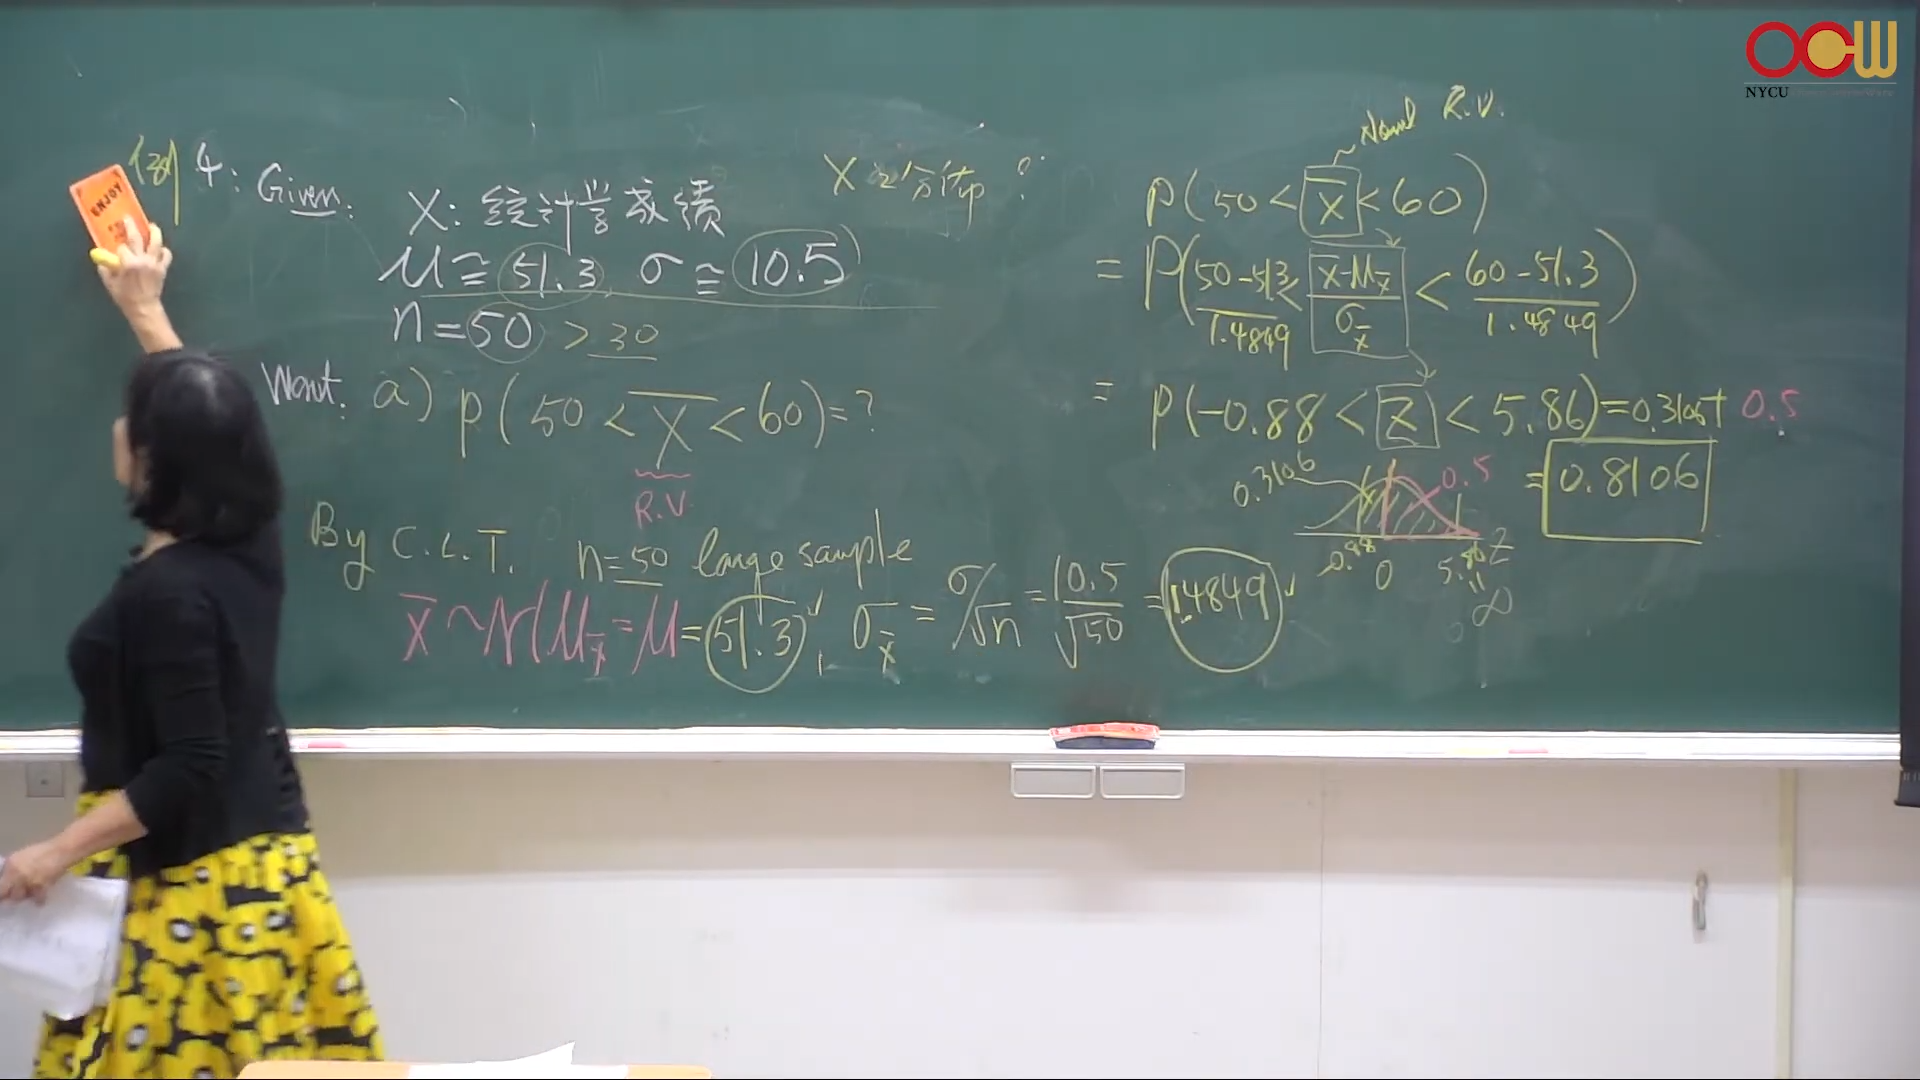 例 4: Given: X: 統計學成績
μ ≅ 51.3 σ ≅ 10.5
n = 50 > 30
X 之分佈 ?
Want: a) P(50 < X̄ < 60) = ?
R.V.
By C.L.T. n = 50 large sample
X̄ ~ N(μx̄ = μ = 51.3, σx̄ = σ/√n = 10.5/√50 = 1.4849
R.V.
P(50 < X̄ < 60)
= P((50-51.3)/1.4849 < (X̄-μx̄)/σx̄ < (60-51.3)/1.4849)
= P(-0.88 < Z < 5.86) = 0.3106 + 0.5
= 0.8106
0.3106 0.5
-0.88 0 5.86 Z
∞
ENJOY
OCW
NYCU OpenCourseWare